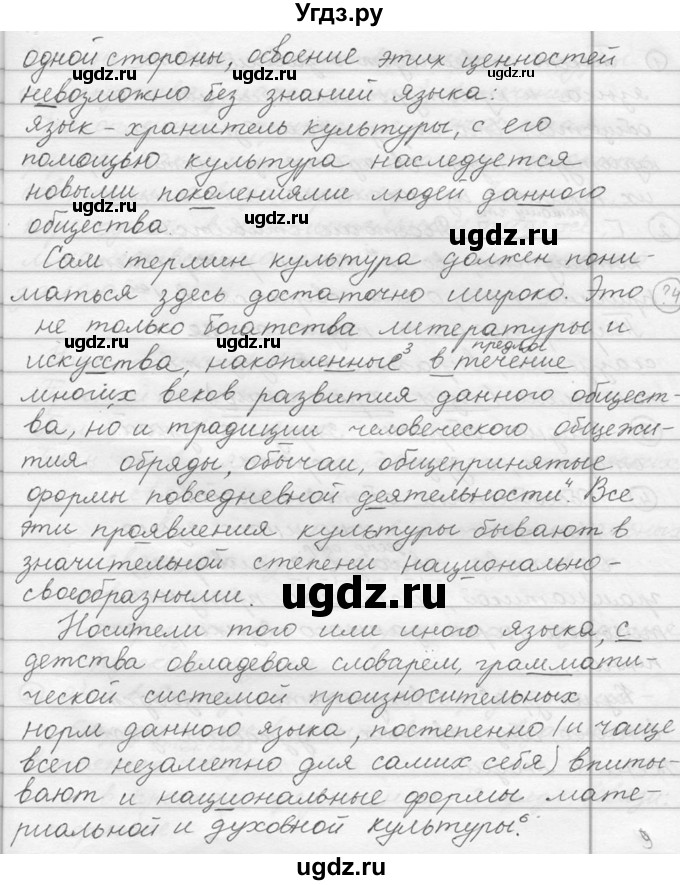 Угдз.ру
одной стороны, освоение этих ценностей
ugdz.ru ugdz.ru ugdz.ru
невозможно без знаний языка:
язык - хранитель культуры, с его
ugdz.ru ugdz.ru
помощью культура наследуется
новыми поколениями людей данного
ugdz.ru
общества.
ugdz.ru
Сам термин культура должен пони-
маться здесь достаточно широко. Это
?4
не только богатства литературы и
ugdz.ru предлог
искусства, накопленные³ в течение
многих веков развития данного общест-
ва, но и традиции человеческого общежи-
ugdz.ru
тия обряды, обычаи, общепринятые
формы повседневной деятельности". Все
ugdz.ru
эти проявления культуры бывают в
значительной степени национально-
своеобразными.
ugdz.ru ugdz.ru
Носители того или иного языка, с
детства овладевая словарём, граммати-
ugdz.ru
ческой системой произносительных
норм данного языка, постепенно (и чаще
ugdz.ru
всего незаметно для самих себя) впиты-
вают и национальные формы мате-
ugdz.ru
риальной и духовной культуры⁶.
9
ugdz.ru